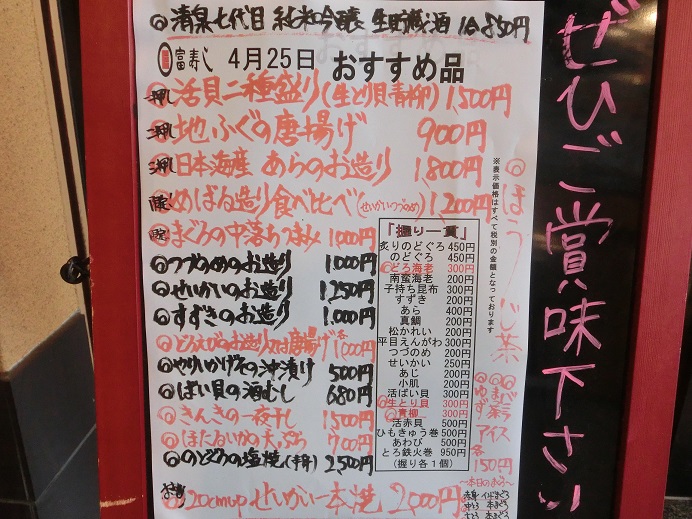 清泉七代目 純米吟醸 生貯蔵酒 1合850円
富寿し 4月25日 おすすめ品
一押 活貝二種盛り(生とり貝青柳) 1,500円
二押 地ふぐの唐揚げ 900円
三押 日本海産 あらのお造り 1,800円
めばる造り食べ比べ(せいかいつづのめ) 1,200円
まぐろの中落ちつまみ 1,000円
つづのめのお造り 1,000円
せいかいのお造り 1,250円
すずきのお造り 1,000円
どろえびのお造り又は唐揚げ 各1,000円
やりいかげその沖漬け 500円
ばい貝の酒むし 680円
きんきの一夜干し 1,500円
ほたるいかの天ぷら 700円
のどぐろの塩焼(半身) 2,500円
20cmup せいかい一本焼 2,000円
「握り一貫」
炙りのどぐろ 450円
のどぐろ 450円
どろ海老 300円
南蛮海老 200円
子持ち昆布 300円
すずき 200円
あら 400円
真鯛 200円
松かれい 200円
平目えんがわ 300円
つづのめ 200円
せいかい 250円
あじ 200円
小肌 200円
活ばい貝 300円
生とり貝 300円
青柳 300円
活赤貝 500円
ひもきゅう巻 500円
あわび 500円
とろ鉄火巻 950円
(握り各1個)
※表示価格はすべて税別の金額となっております
ほうじ茶
ゆず
アイス
各150円
〜本日のまぐろ〜
赤身 インドまぐろ
中とろ 本まぐろ
大とろ 本まぐろ
ぜひご賞味下さい